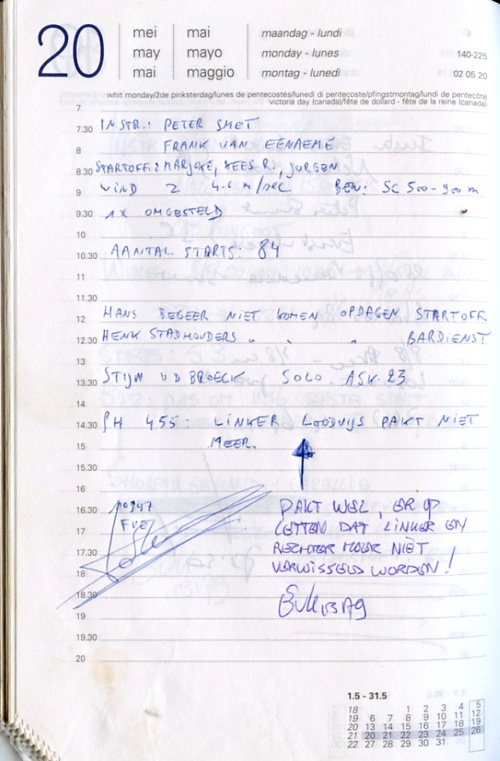 20
mei mai maandag - lundi
may mayo monday - lunes 140-225
mai maggio montag - lunedì 02 05 20
whit monday/2de pinksterdag/lunes de pentecostés/lunedì di pentecoste/pfingstmontag/lundi de pentecôte
victoria day (canada)/fête de dollard - fête de la reine (canada)
7
7.30 INSTR.: PETER SMET
8 FRANK VAN EENAEME
8.30 STARTOFF: MARJOKE, KEES R., JURGEN
9 WIND Z 4-6 m/sec BEW: SC 500-900 m
9.30 1X OMGESTELD
10
10.30 AANTAL STARTS: 84
11
11.30
12 HANS BEGEER NIET KOMEN OPDAGEN STARTOFF
12.30 HENK STADHOUDERS " " " BARDIENST
13
13.30 STIJN V D BROECK SOLO ASK-23
14
14.30 PH 455: LINKER LOODVIJS PAKT NIET
15 MEER.
15.30
16
16.30 PAKT WEL, ER OP
17 LETTEN DAT LINKER EN
17.30 RECHTER MOER NIET
18 VERWISSELD WORDEN!
18.30
19
19.30
20
1.5 - 31.5
18 1 2 3 4 5
19 6 7 8 9 10 11 12
20 13 14 15 16 17 18 19
21 20 21 22 23 24 25 26
22 27 28 29 30 31